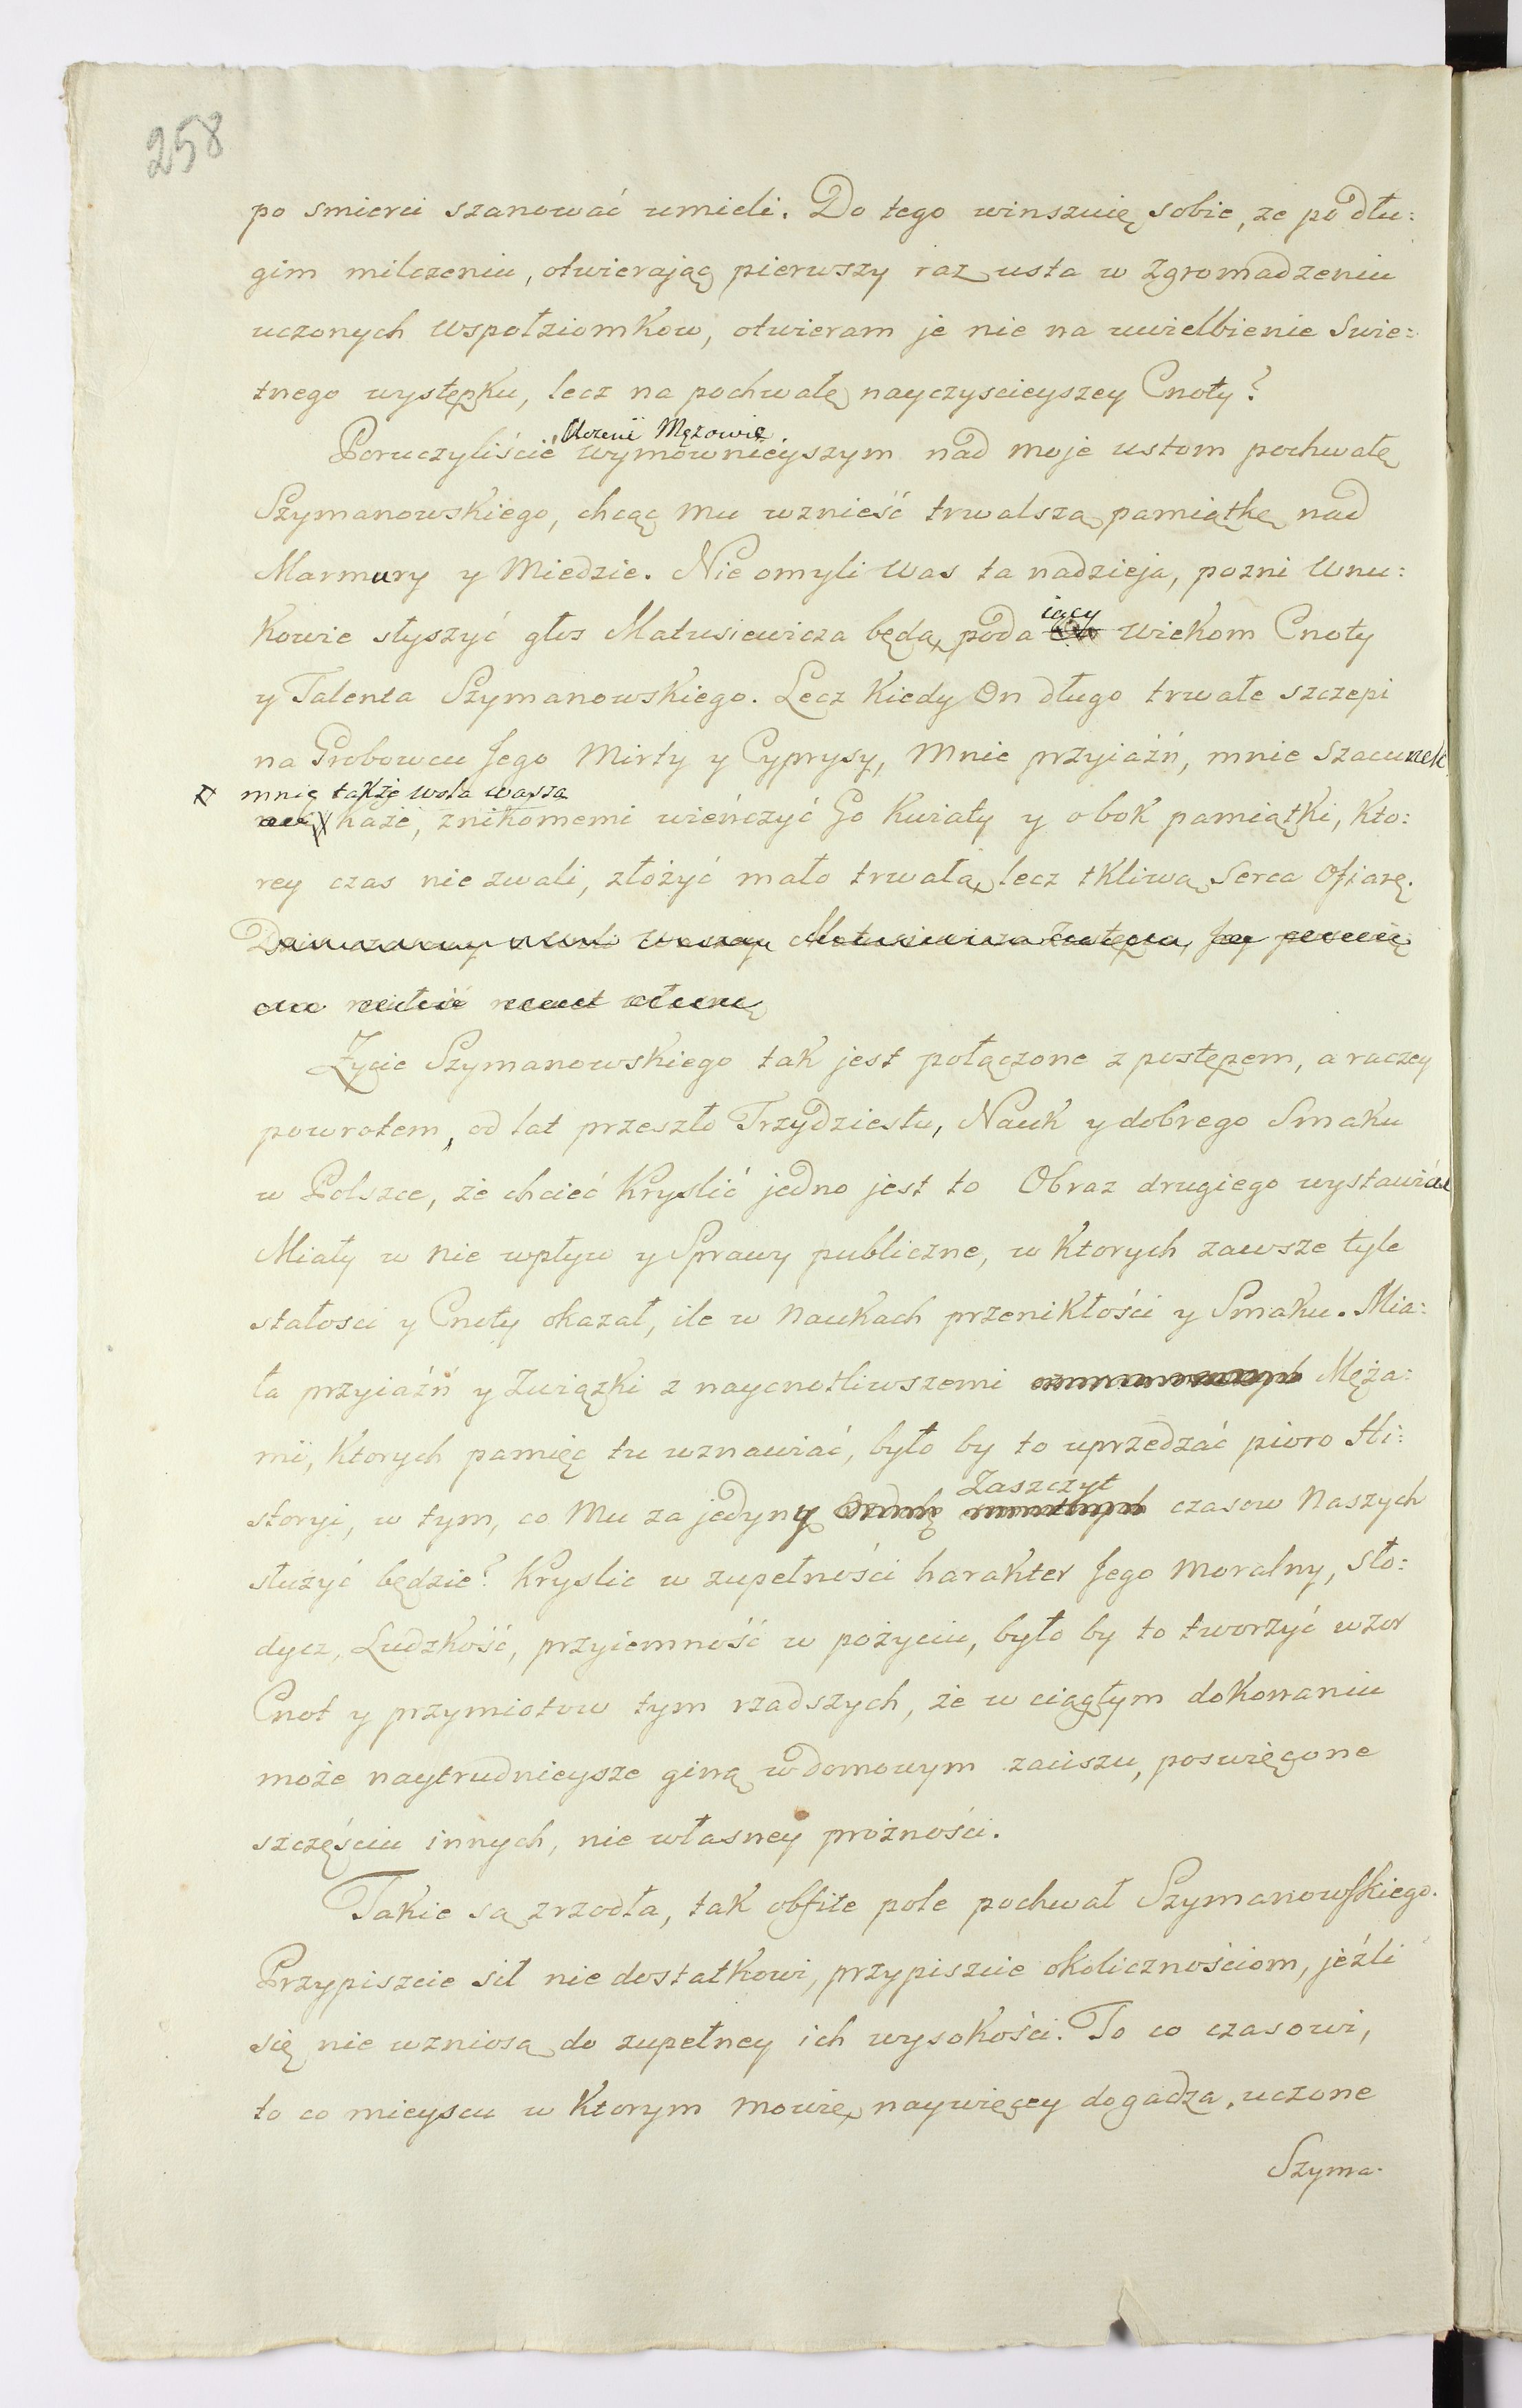 258
po smierci szanować umieli. Do tego winszuię sobie, ze po dłu:
gim milczeniu, otwierając pierwszy raz usta w Zgromadzeniu
uczonych wspołziomkow, otwieram je nie na uwielbienie swie:
tnego występku, lecz na pochwałę nayczyscieyszey Cnoty?
Uczeni Mężowie
Poruczyliście wymownieyszym nad moje ustom pochwałę
Szymanowskiego, chcąc mu wznieść trwalszą pamiątkę nad
Marmury y Miedzie. Nie omyli was ta nadzieja, pozni Wnu:
iący
kowie słyszyć głos Matusiewicza będą, poda wiekom Cnoty
y Talenta Szymanowskiego. Lecz kiedy On długo trwałe szczepi
na Grobowcu Jego Mirty y Cyprysy, mnie przyiaźń, mnie szacunek
mnie także wola wasza
każe, znikomemi wieńczyć Go kwiaty y obok pamiątki, kto:
rey czas nie zwali, złożyć mało trwałą, lecz tkliwą Serca Ofiarę.
Życie Szymanowskiego tak jest połączone z postępem, a raczey
powrotem, od lat przeszło Trzydziestu, Nauk y dobrego Smaku
w Polszce, że chcieć kryslić jedno jest to Obraz drugiego wystawiać
Miały w nie wpływ y Sprawy publiczne, w ktorych zawsze tyle
stałosci y Cnoty okazał, ile w Naukach przenikłości y Smaku. Mia:
ła przyiaźń y Związki z naycnotliwszemi Męża:
mi, ktorych pamięć tu wznawiać, było by to uprzedzać pioro Hi:
Zaszczyt
storyi, w tym, co Mu za jedyny czasow Naszych
służyć będzie? Kryslic w zupełności harakter Jego moralny, sło:
dycz, Ludzkość, przyiemność w pożyciu, było by to tworzyć wzor
Cnot y przymiotow tym rzadszych, że w ciągłym dokonaniu
może naytrudnieysze giną w domowym zaciszu, poswięcone
szczęściu innych, nie własney prożności.
Takie są zrzodła, tak obfite pole pochwał Szymanowskiego.
Przypiszcie sił niedostatkowi, przypiszcie okolicznościom, jeźli
się nie wzniosą do zupełney ich wysokości. To co czasowi,
to co mieyscu w ktorym mowię, naywięcey dogadza, uczone
Szyma-